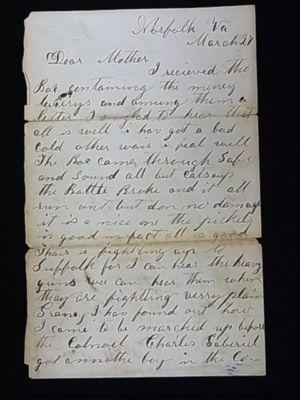 Norfolk Va
March 27
Dear Mother
I recieved the
Box containing the meney
luxurys and amung them a
letter I am glad to hear that
all is well i hav got a bad
cold other wais i feal well
The Box came through Safe
and Sound all but
the Bottle Broke and it all
run out but don no damage
it is a nice one the pickels
is good in fact all is good
Thair is fighting up to
Suffolk for I can hear the heavy
guns we can hear them when
thay are fighting verry plain
I hav found out how
I come to be marched up before
the Colnoel Charles
got annother boy in the Co.